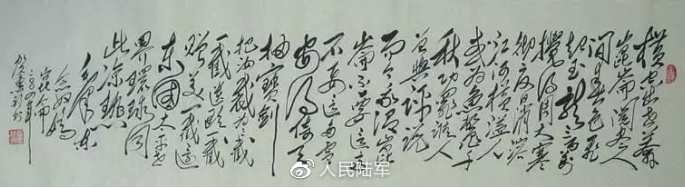 横空出世莽
崑崙阅尽人
间春色飞
起玉龙三百万
搅得周天寒
彻夏日消溶
江河横溢人
或为鱼鳖千
秋功罪谁人
曾与评说
而今我谓崑
崙不要这高
不要这多雪
安得倚天
抽宝剑
把汝裁为三截
一截遗欧一截
赠美一截还
东国太平世
界环球同
此凉热
毛泽东
念奴娇
@人民陆军